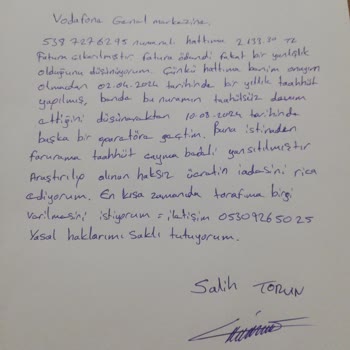 Vodafone Genel merkezine.
538 7276295 numaralı hattıma 2.133.30 TL
Fatura çıkarılmıştır fatura ödendi fakat bir yanlışlık
olduğunu düşünüyorum. Çünkü hattıma benim onayım
olmadan 02.04.2024 tarihinde bir yıllık taahhüt
yapılmış, bende bu numaramın taahütsüz devam
ettiğini düşünerekten 10.08.2024 tarihinde
başka bir operatöre geçtim. Buna istinaden
faturama taahhüt cayma bedeli yansıtılmıştır
Araştırılıp alınan haksız ücretin iadesini rica
ediyorum. En kısa zamanda tarafıma bilgi
verilmesini istiyorum = iletişim 05309265025
Yasal haklarımı saklı tutuyorum.
Salih TORUN